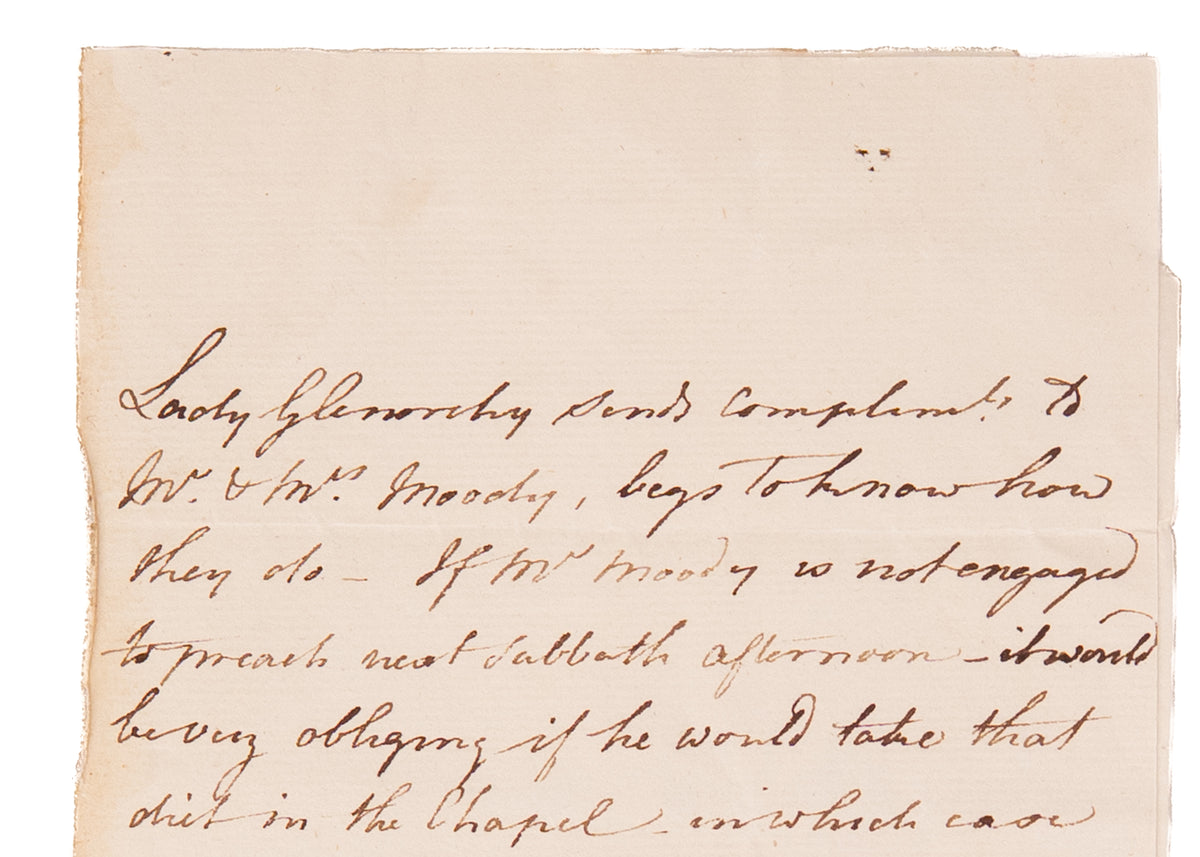 Lady Glenorchy sends complimts. to
Mr. & Mrs. Moody, begs To know how
they do - If Mr Moody is not engaged
to preach next Sabbath afternoon - it would
be very obliging if he would take that
diet in the Chapel - in which case